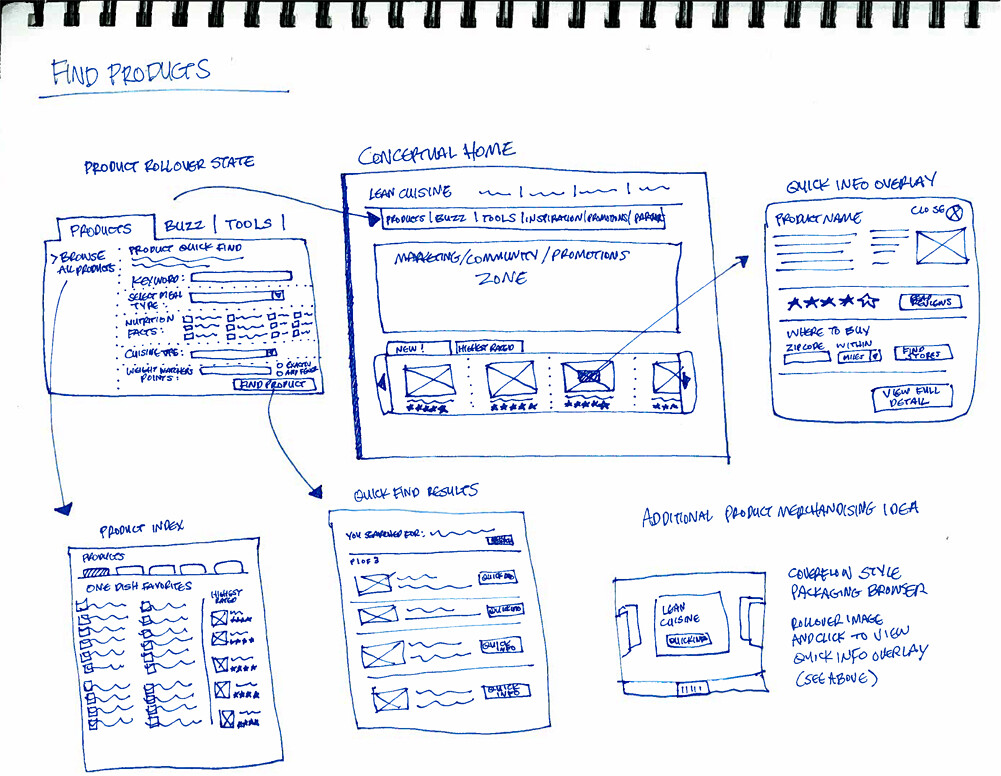 FIND PRODUCTS
PRODUCT ROLLOVER STATE
PRODUCTS | BUZZ | TOOLS |
> BROWSE
ALL PRODUCTS
PRODUCT QUICK FIND
KEYWORD:
SELECT MEAL
TYPE:
NUTRITION
FACTS:
CUISINE TYPE:
WEIGHT WATCHERS
POINTS:
EXACTLY
FIND PRODUCT
CONCEPTUAL HOME
LEAN CUISINE
PRODUCTS | BUZZ | TOOLS | INSPIRATION / PROMOTIONS / PARTNER
MARKETING/COMMUNITY/PROMOTIONS
ZONE
NEW!
HIGHEST RATED
QUICK INFO OVERLAY
PRODUCT NAME
CLOSE X
READ
REVIEWS
WHERE TO BUY
ZIPCODE WITHIN
MILES
FIND
STORES
VIEW FULL
DETAIL
PRODUCT INDEX
PRODUCTS
ONE DISH FAVORITES
HIGHEST
RATED
QUICK FIND RESULTS
YOU SEARCHED FOR:
P 1 OF 3
QUICK INFO
QUICK INFO
QUICK
INFO
QUICK
INFO
ADDITIONAL PRODUCT MERCHANDISING IDEA
LEAN
CUISINE
QUICKINFO
COVERFLOW STYLE
PACKAGING BROWSER
ROLLOVER IMAGE
AND CLICK TO VIEW
QUICK INFO OVERLAY
(SEE ABOVE)